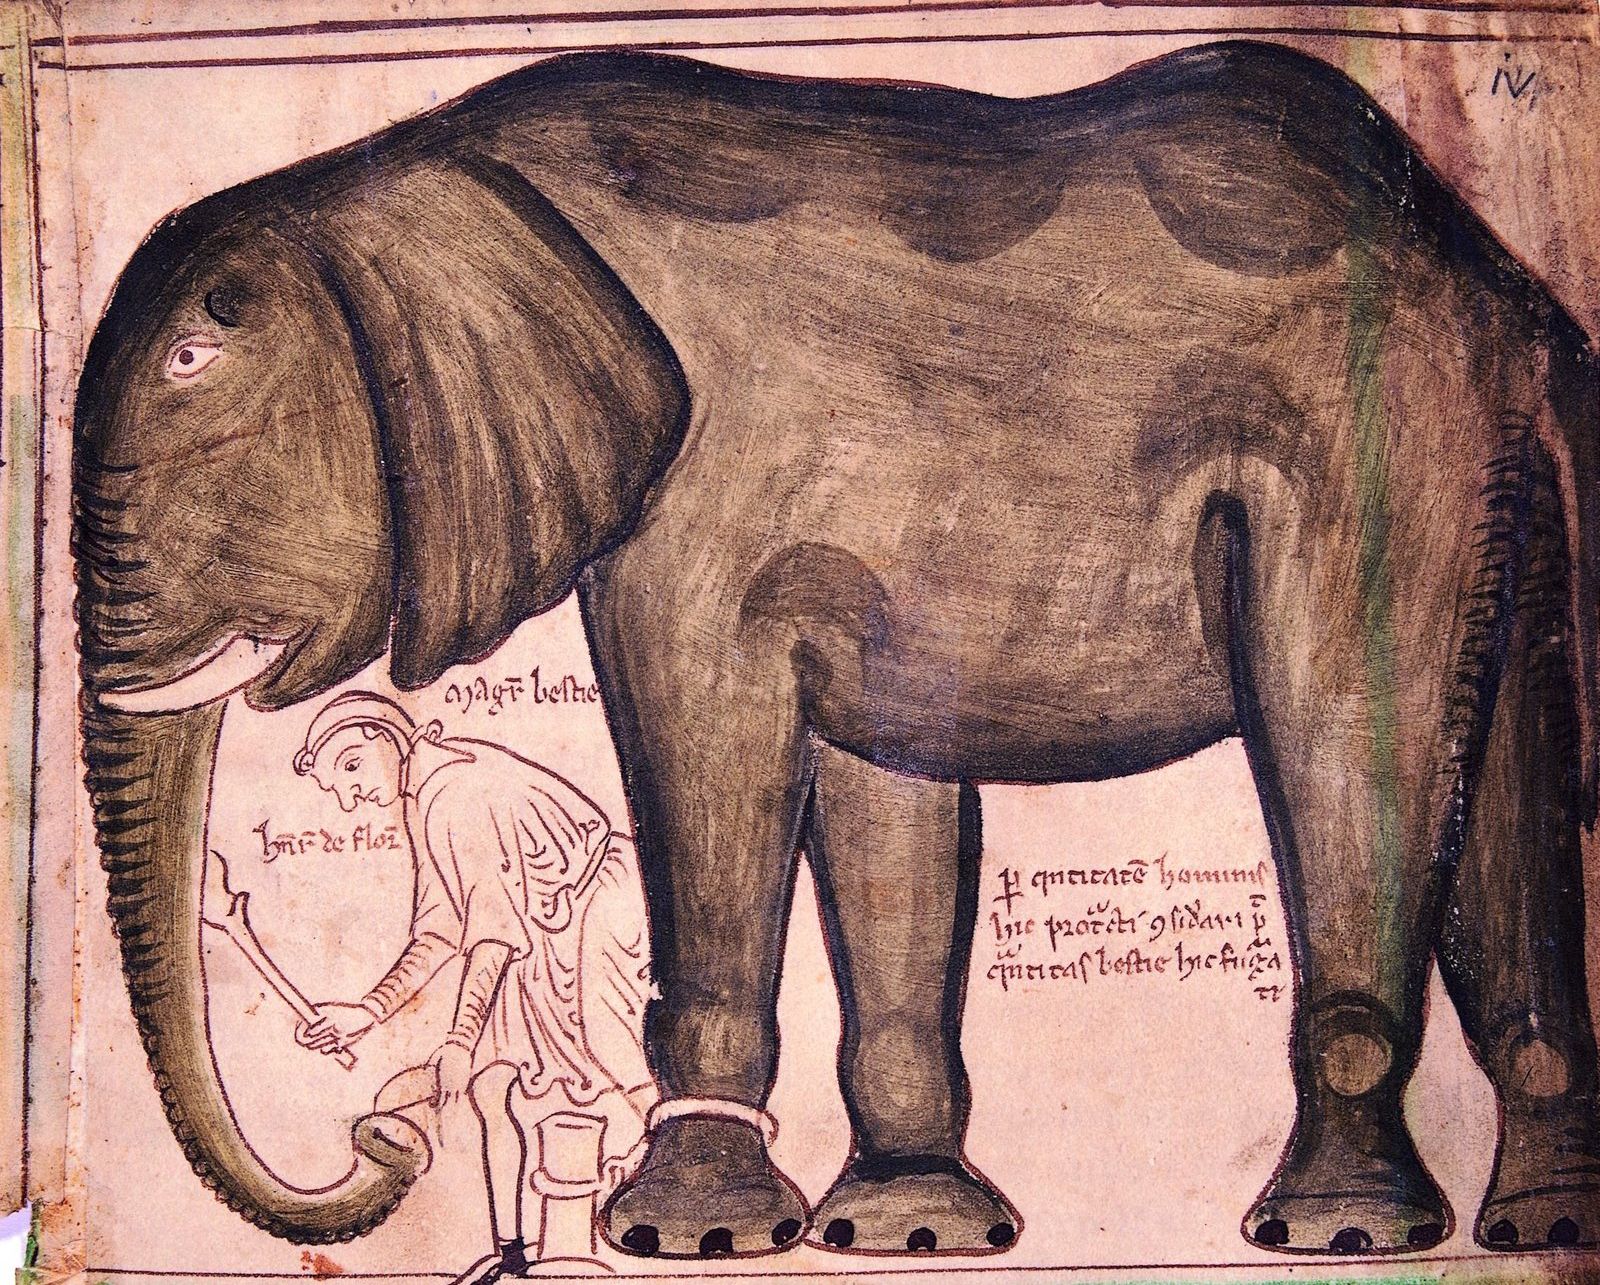 iv
Magr̄ bestie
hn̄r̄ de flor̄
ꝑ qͣntitatē hominis
hic protͣcti ꝯsid̾ari p̄t
qͣntitas bestie hic figᷓa
ti